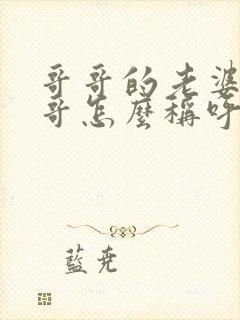 哥哥的老婆
哥怎麼稱呼
藍堯